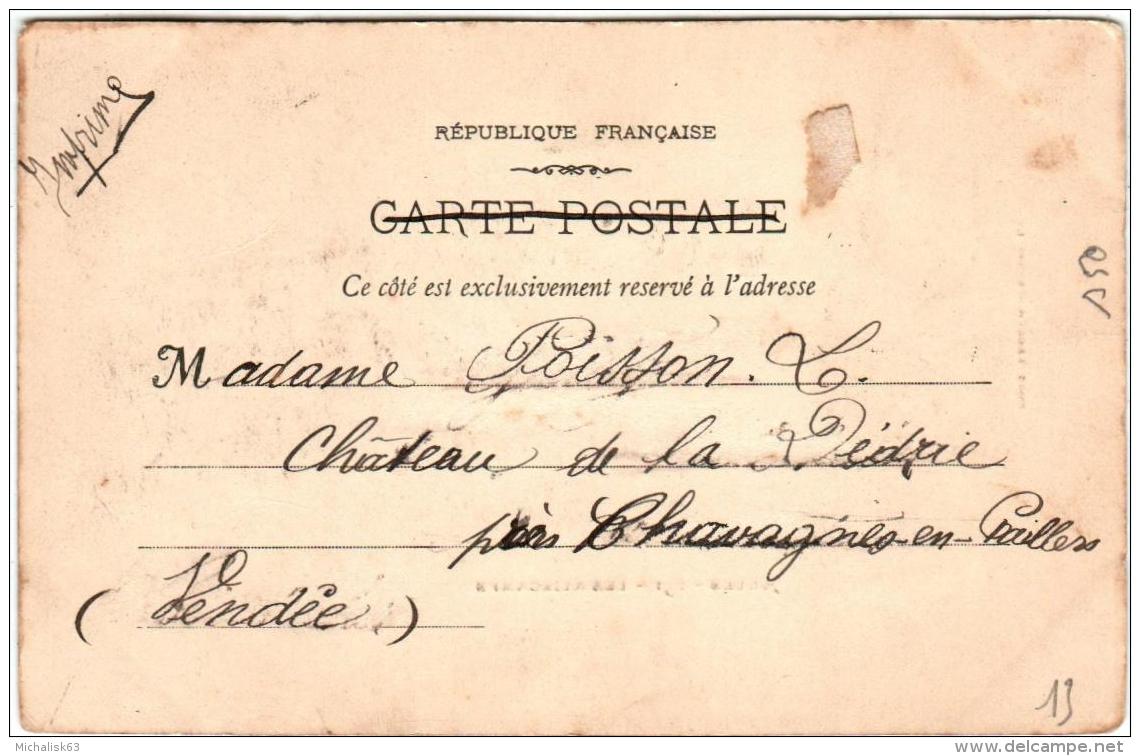 Imprimé
RÉPUBLIQUE FRANÇAISE
CARTE POSTALE
Ce côté est exclusivement reservé à l'adresse
150
Madame Poisson. L.
Château de la
près Chavagnes-en-Paillers
(Vendée)
13
Michalisk63
www.delcampe.net